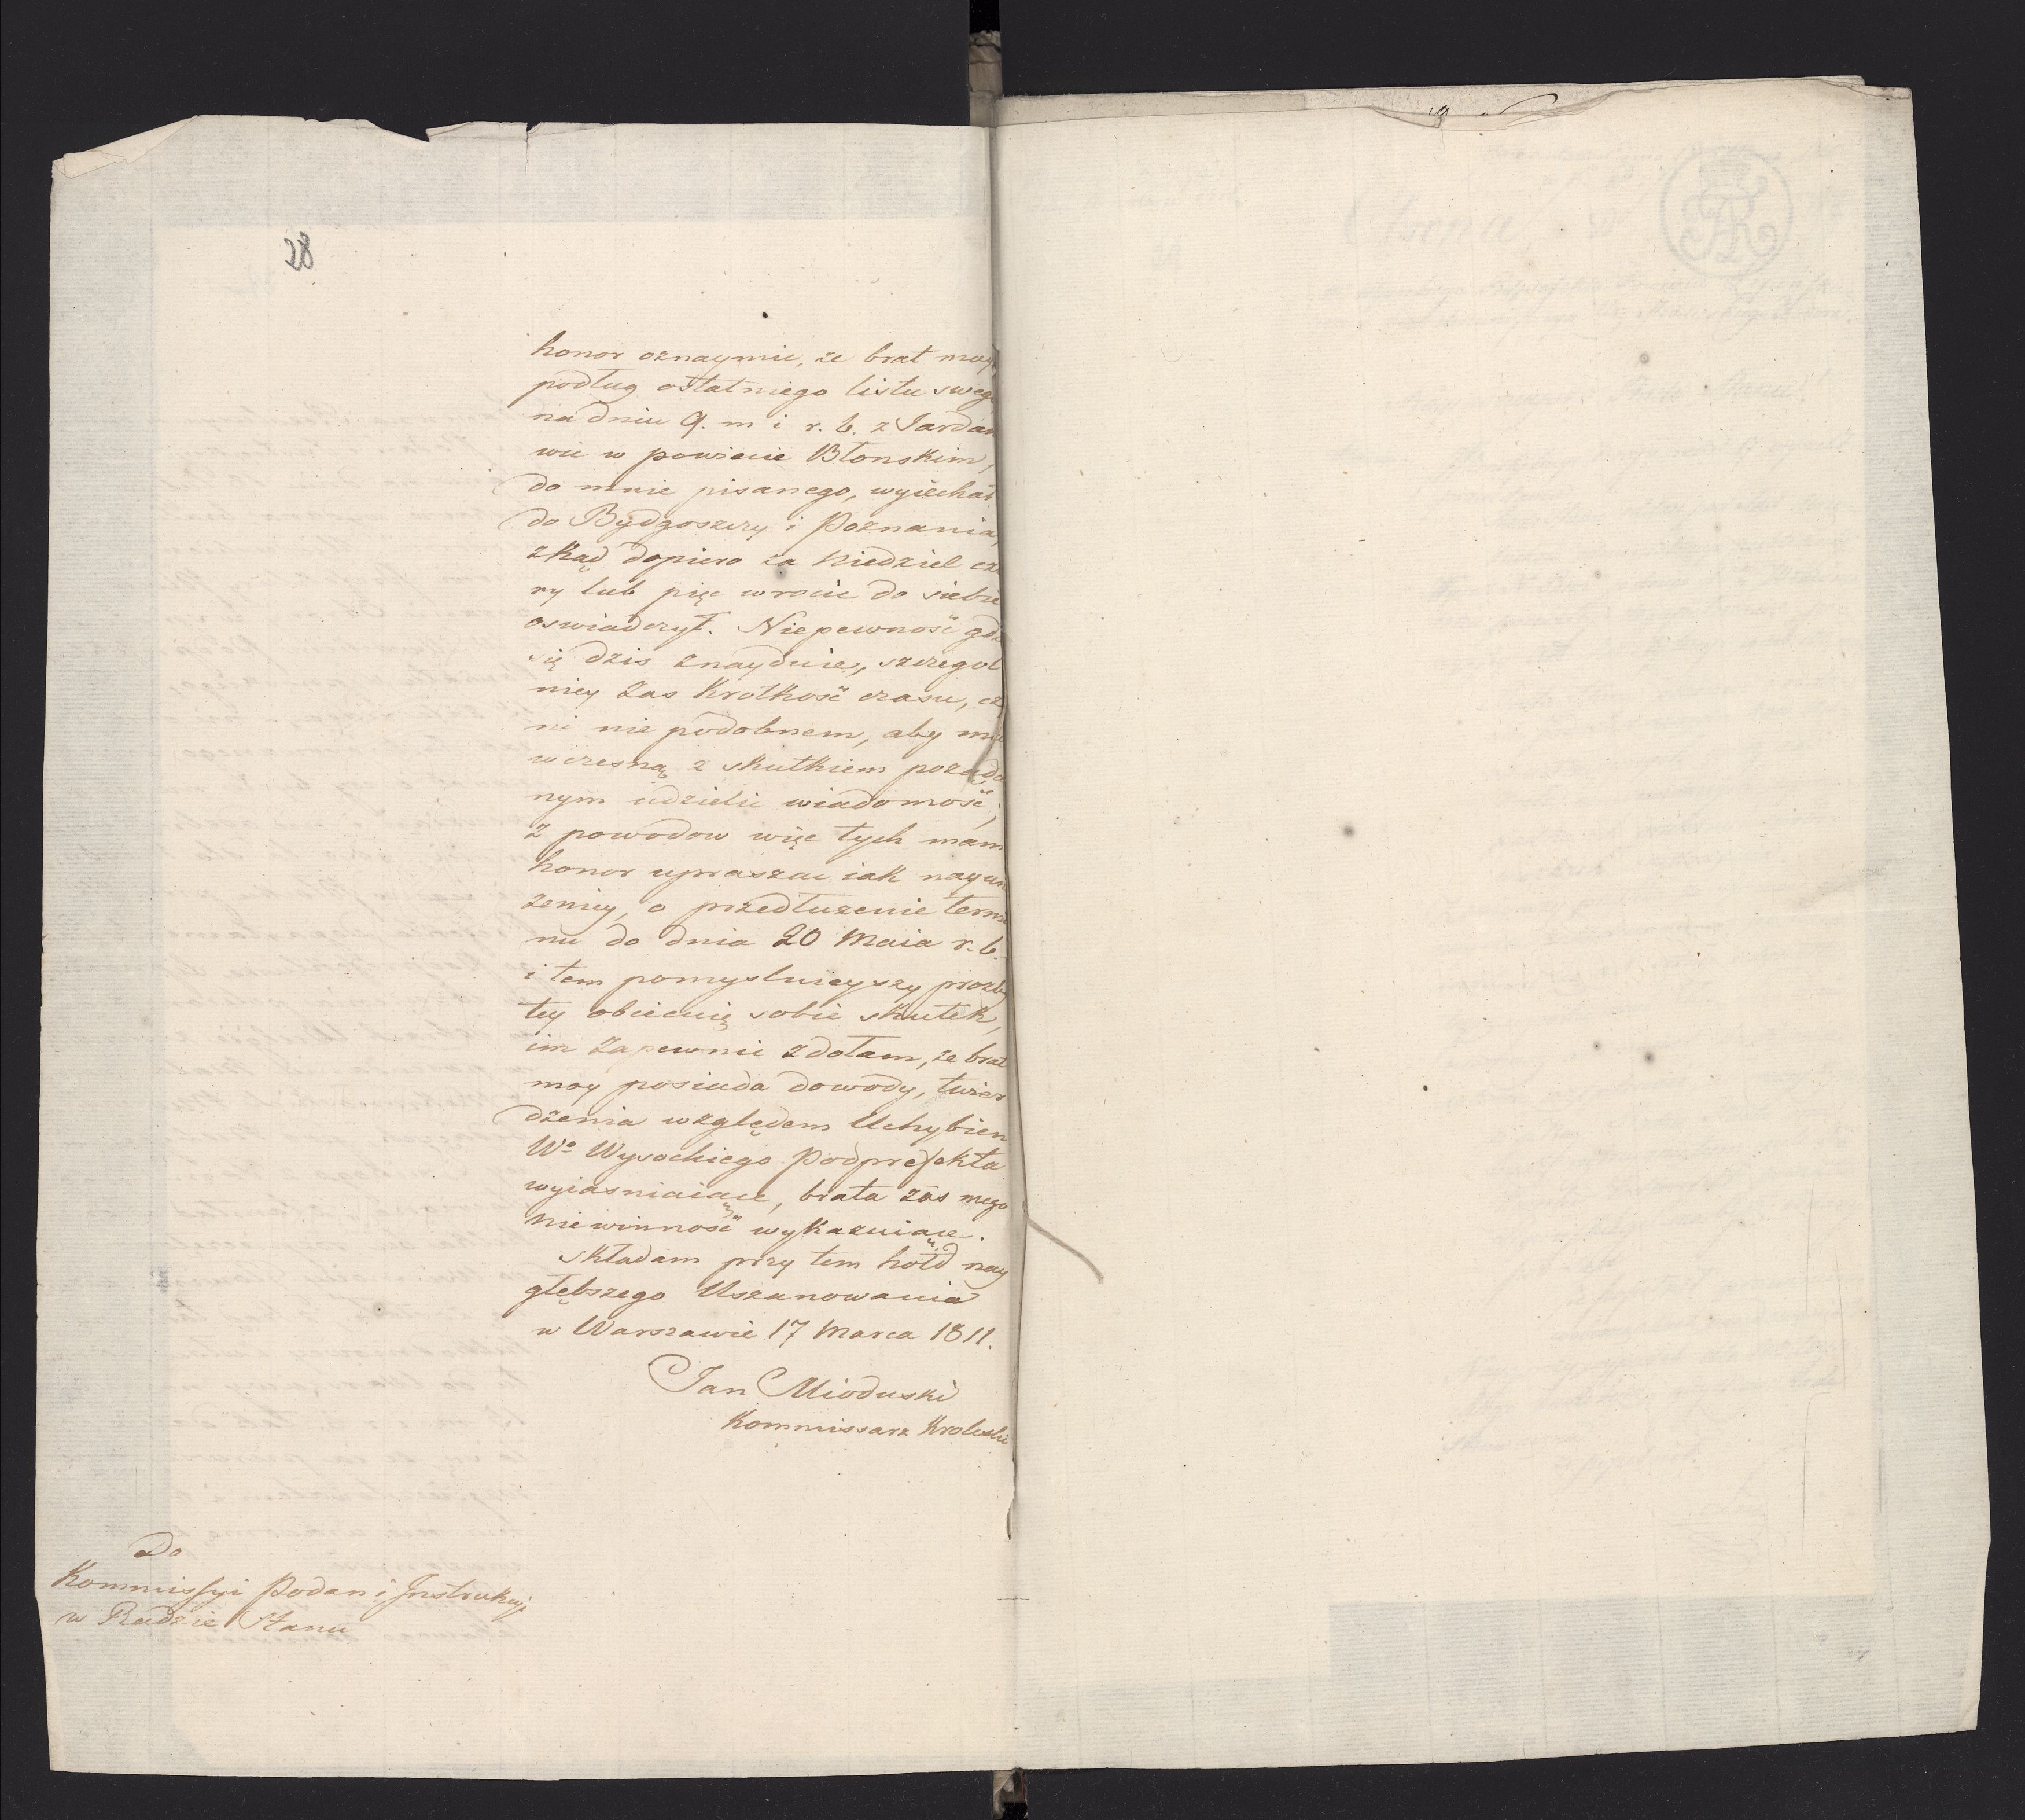 28
honor oznaymic, że brat moy
podług ostatniego listu swego
na dniu 9. m i r. b. z Jardan
wic w powiecie Błonskim,
do mnie pisanego, wyiechał
do Bydgoszczy i Poznania,
zkąd dopiero za Niedziel czt
ry lub pięc wrocic do siebie
oswiadczył. Niepewność gdz
się dzis znayduie, szczegol
niey zas krotkość czasu, cz
ni nie podobnem, aby mu
wczesną z skutkiem pożąda
nym udzielic wiadomość,
z powodow więc tych mam
honor upraszac iak nayun
żeniey, o przedłużenie termi
nu do dnia 20 Maia r. b.
i tem pomyslnieyszy prozby
tey obiecuię sobie skutek,
im zapewnic zdołam, że brat
moy posiada dowody, twier
dzenia względem Uchybien
Wo Wysockiego Podprefekta
wyiasniaiące, brata zas mego
niewinność wykazuiące.
Składam przy tem hołd nay
głębszego Uszanowania
w Warszawie 17 Marca 1811.
Jan Mioduski
Kommissarz Krolewski
Do
Kommissyi Podan i Instrukcyi
w Radzie Stanu